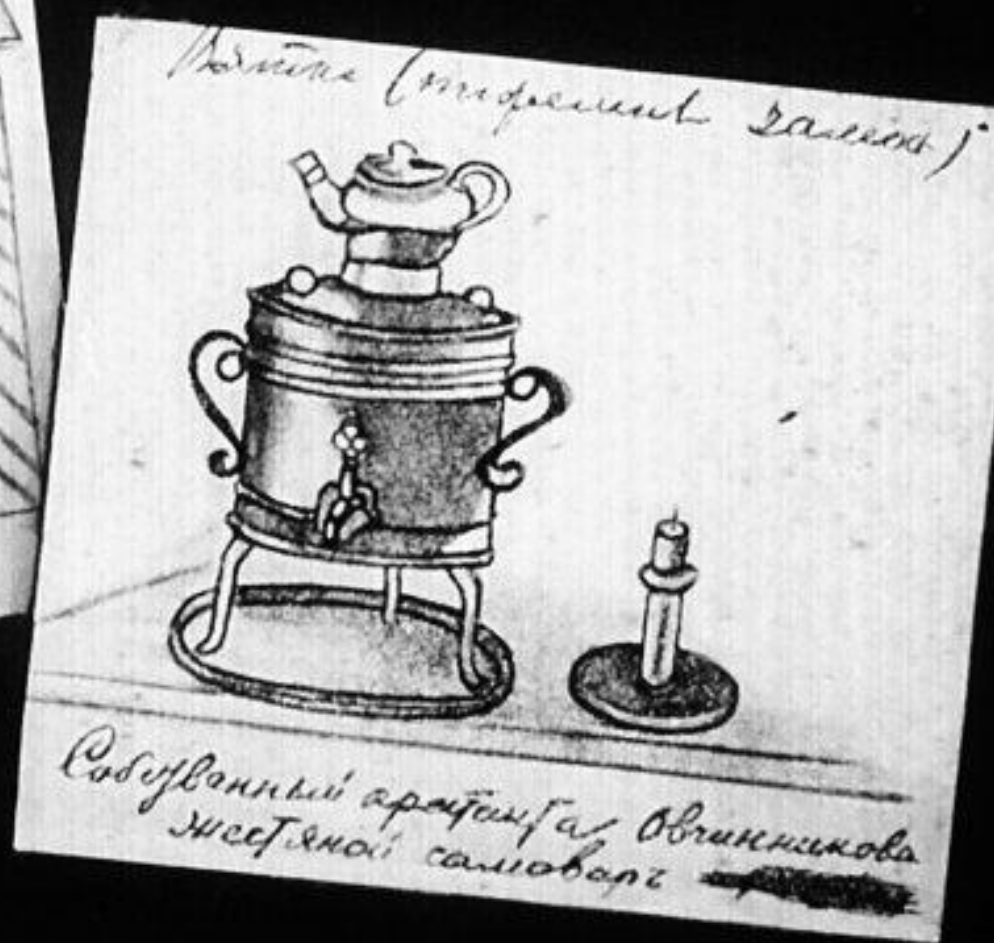 Вятка (тюремный замокъ)
Собственный арестанта Овчинникова
жестяной самоваръ